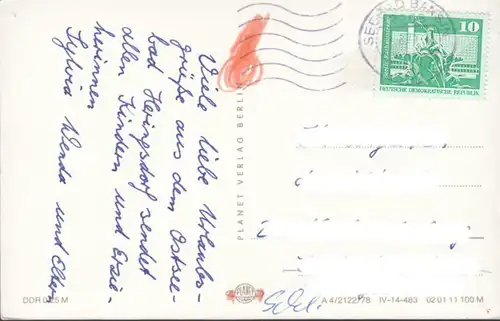 Viele liebe Urlaubs-
grüße aus dem Ostsee-
bad Heringsdorf sendet
allen Kindern und Erzie-
herinnen
Sylvia Wenda und Eltern
PLANET VERLAG BERLIN
SEEBAD BANSIN
10
DEUTSCHE DEMOKRATISCHE REPUBLIK
PLANET
DDR 0,25 M
A 4/2122/78 IV-14-483 02 01 11 100 M